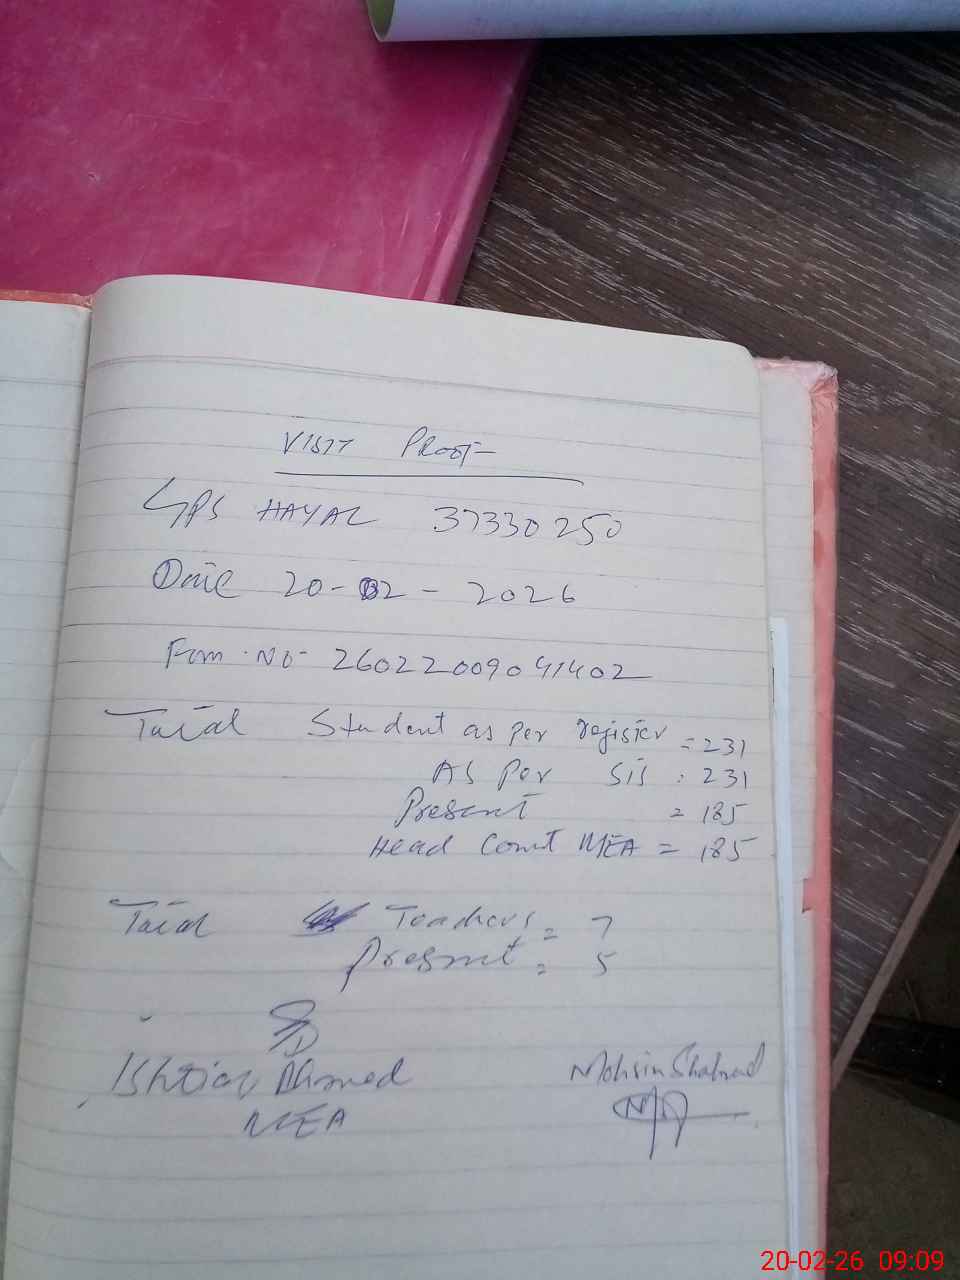 VISIT PROOF
GPS HAYAL 37330250
Date 20-02-2026
Form No 26022009041402
Total Student as per register = 231
AS Per SIS : 231
Present = 185
Head Count MEA = 185
Total Teachers = 7
Present = 5
Ishtiaq Ahmed
MEA
Mohsin Shahzad
20-02-26 09:09